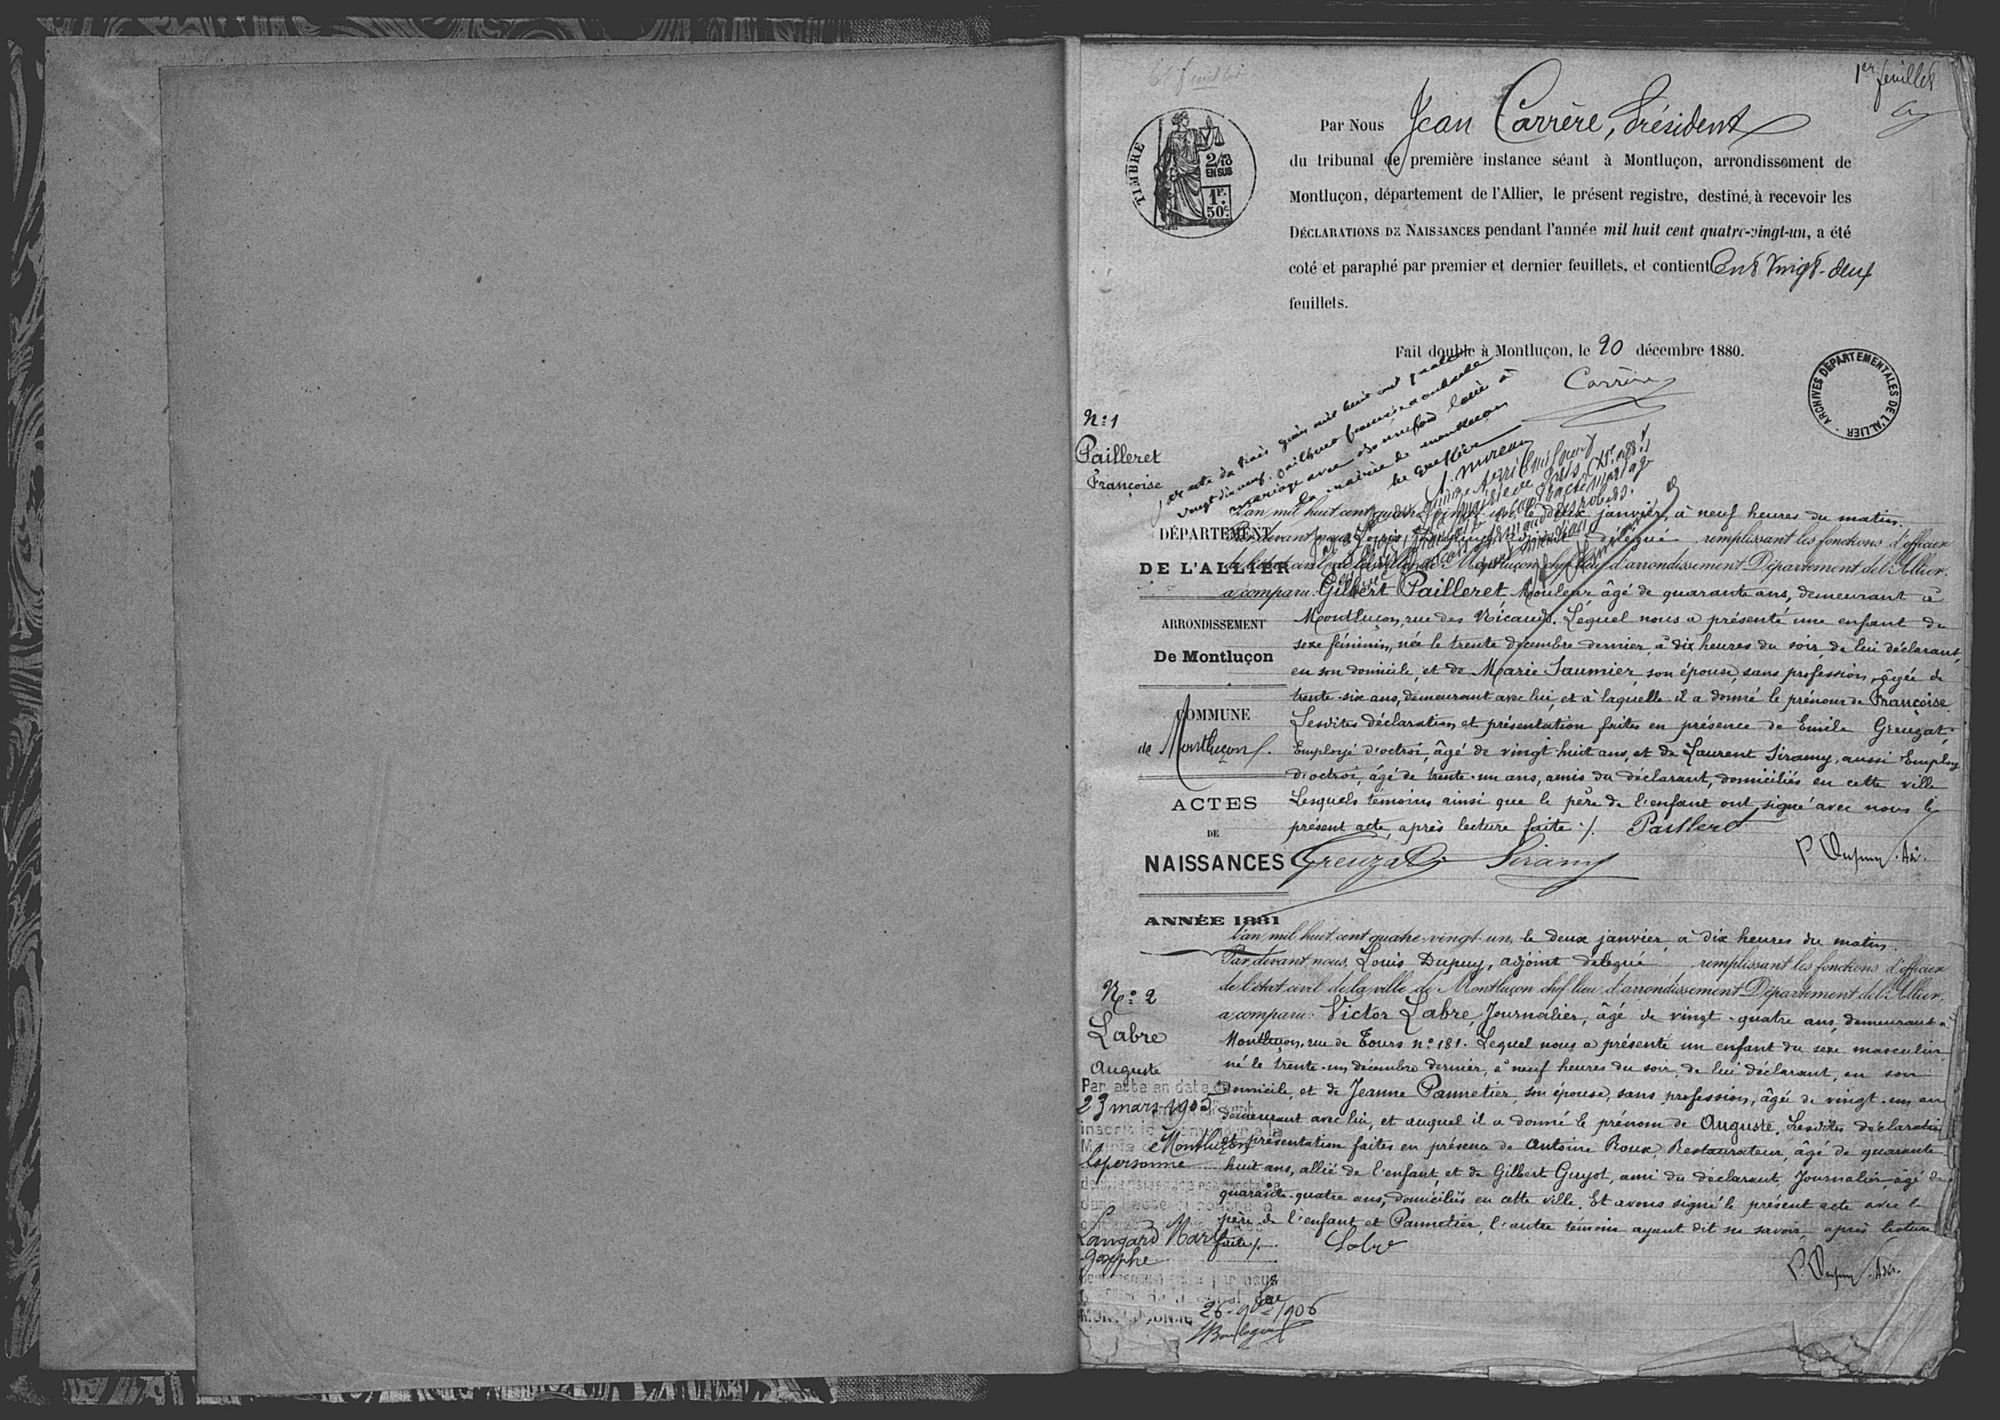 1er feuillet
TIMBRE
2/10
EN SUS
1F.
50c
Par Nous Jean Carrère, Président
du tribunal de première instance séant à Montluçon, arrondissement de
Montluçon, département de l'Allier, le présent registre, destiné à recevoir les
Déclarations de Naissances pendant l'année mil huit cent quatre-vingt-un, a été
coté et paraphé par premier et dernier feuillets, et contient Cent Vingt-deux
feuillets.
Fait double à Montluçon, le 20 décembre 1880.
Carrère
ARCHIVES DÉPARTEMENTALES DE L'ALLIER
N:1
Pailleret
Françoise
mil huit cent
vingt dix neuf
mariage avec
la mairie de Montluçon
Le greffier
DÉPARTEMENT
DE L'ALLIER
ARRONDISSEMENT
De Montluçon
COMMUNE
de Montluçon
ACTES
DE
NAISSANCES
ANNÉE 1881
L'an mil huit cent quatre vingt un le deux janvier, à neuf heures du matin.
Par devant nous, Louis délégué remplissant les fonctions d'officier
de l'état civil de la ville de Montluçon chef lieu d'arrondissement Département de l'Allier,
a comparu: Gilbert Pailleret Mouleur âgé de quarante ans, demeurant à
Montluçon, rue des Nicauds. Lequel nous a présenté une enfant du
sexe féminin, née le trente décembre dernier, à dix heures du soir, de lui déclarant,
en son domicile, et de Marie Saumier, son épouse, sans profession, âgée de
trente-six ans, demeurant avec lui, et à laquelle il a donné le prénom de Françoise
Lesdites déclaration et présentation faites en présence de Emile Greuzat,
Employé d'octroi, âgé de vingt-huit ans, et de Laurent Siramy, aussi Employé
d'octroi, âgé de trente-un ans, amis du déclarant, domiciliés en cette ville
Lesquels témoins ainsi que le père de l'enfant ont signé avec nous le
présent acte, après lecture faite ./. Pailleret
Greuzat Siramy
L. Dupuy. Adj.
N:2
Labre
Auguste
Par acte en date du
23 mars 1905
Montluçon
Lapersonne
Langard Marie
Josèphe
26 - 9bre 1906
L'an mil huit cent quatre-vingt-un, le deux janvier, à dix heures du matin.
Par devant nous, Louis Dupuy, adjoint délégué remplissant les fonctions d'officier
de l'état civil de la ville de Montluçon chef lieu d'arrondissement Département de l'Allier,
a comparu: Victor Labre, Journalier, âgé de vingt-quatre ans, demeurant à
Montluçon, rue de Tours n:181. Lequel nous a présenté un enfant du sexe masculin
né le trente-un décembre dernier, à neuf heures du soir, de lui déclarant, en son
domicile, et de Jeanne Pannetier, son épouse, sans profession, âgée de vingt-un ans
demeurant avec lui, et auquel il a donné le prénom de Auguste. Lesdites déclaration
et présentation faites en présence de Antoine Roux, Restaurateur, âgé de quarante
huit ans, allié de l'enfant, et de Gilbert Guyot, ami du déclarant, Journalier âgé de
quarante-quatre ans, domiciliés en cette ville. Et avons signé le présent acte avec le
père de l'enfant et Pannetier, l'autre témoin ayant dit ne savoir, après lecture
faite ./. Labre
L. Dupuy. Adj.